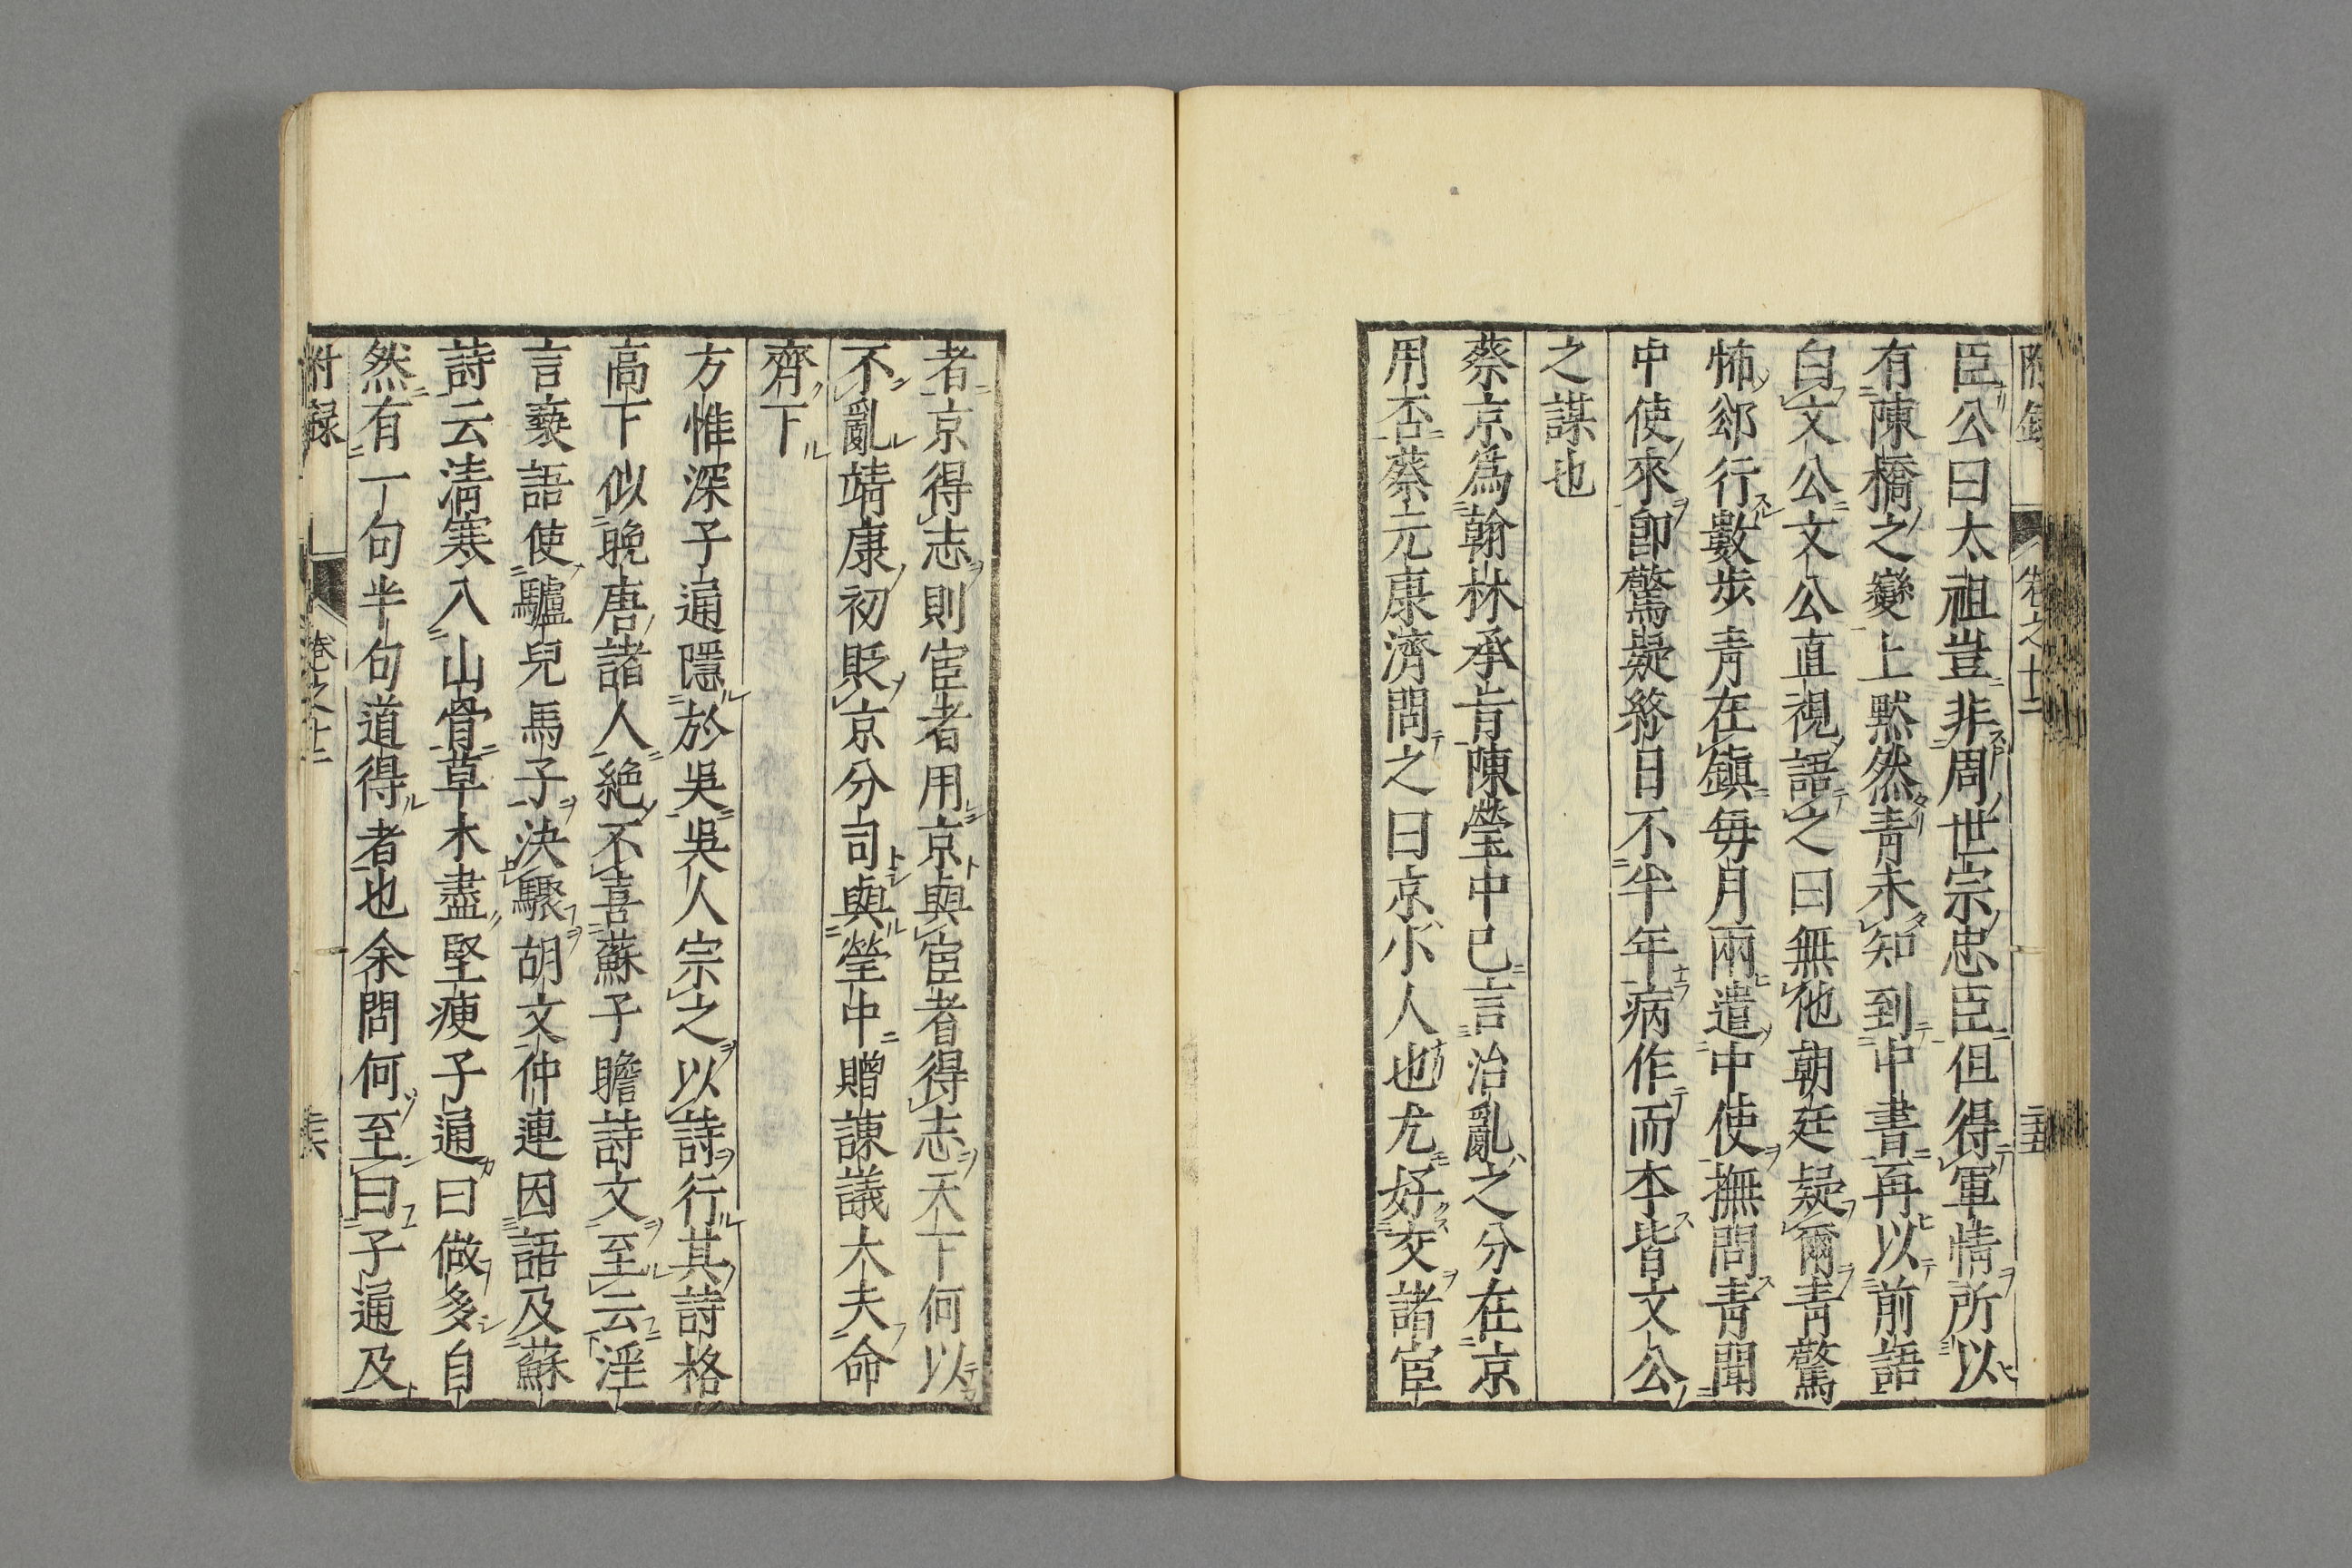 臣公曰太祖豈非周世宗忠臣但得軍情所以
有陳橋之變上黙然青未知到中書再以前語
白文公文公直視語之曰無他朝廷疑爾青驚
怖郤行數歩青在鎮毎月兩遣中使撫問青聞
中使來即驚疑終日不半年病作而卒皆文公
之謀也
蔡京爲翰林承肯陳瑩中已言治亂之分在京
用否蔡元康濟問之曰京小人也尤好交諸宦
者京得志則宦者用京與宦者得志天下何以
不亂靖康初貶京分司與瑩中贈諌議大夫命
齊下
方惟深子通隱於吳吳人宗之以詩行其詩格
高下似晩唐諸人絶不喜蘇子瞻詩文至云淫
言褻語使驢兒馬子決驟胡文仲連因語及蘇
詩云清寒入山骨草木盡堅痩子通曰做多自
然有一句半句道得者也余問何至曰子通及
附録 卷之十二